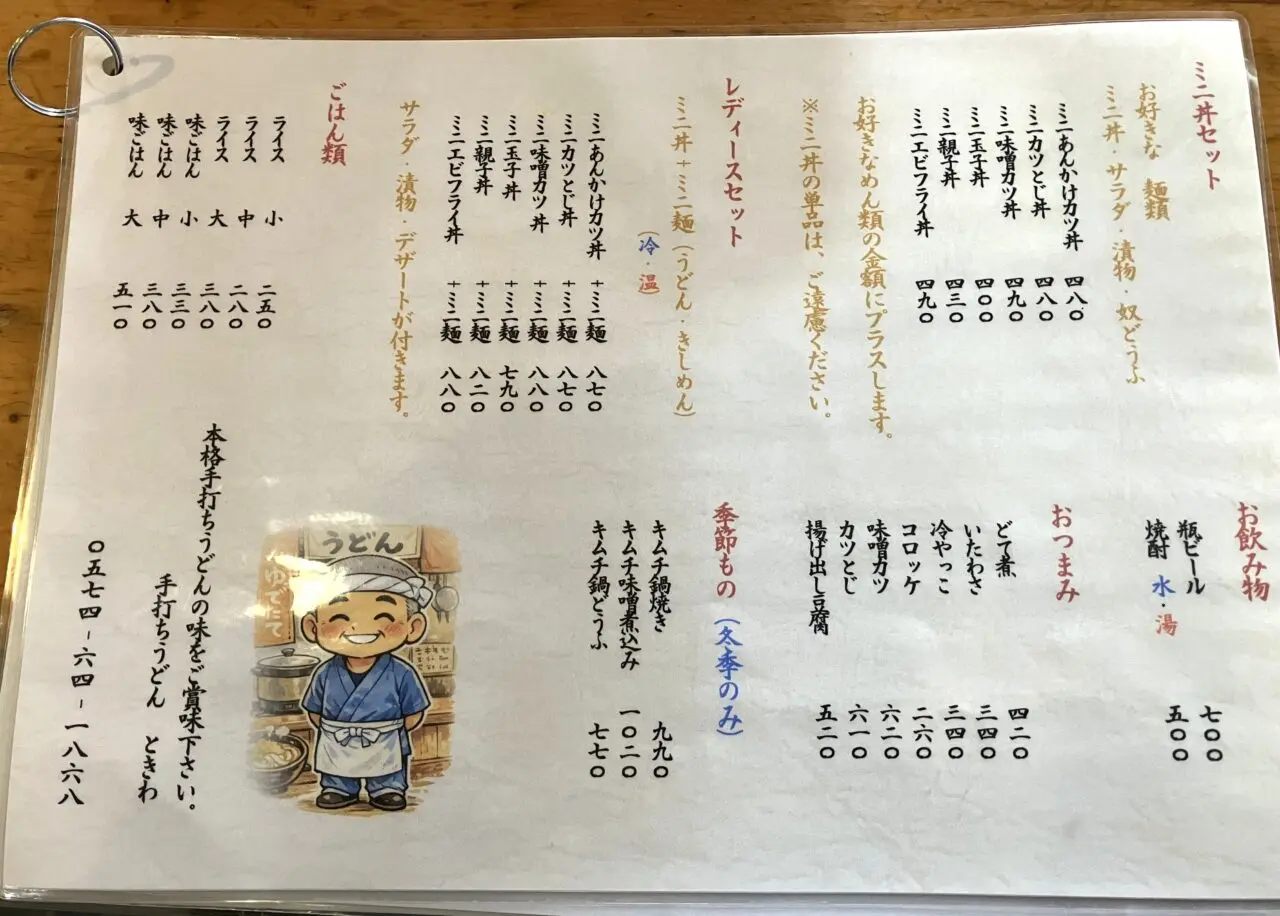 ミニ丼セット
お好きな 麺類
ミニ丼・サラダ・漬物・奴どうふ
ミニあんかけカツ丼 四八〇
ミニカツとじ丼 四八〇
ミニ味噌カツ丼 四九〇
ミニ玉子丼 四〇〇
ミニ親子丼 四三〇
ミニエビフライ丼 四九〇
お好きなめん類の金額にプラスします。
※ミニ丼の単品は、ご遠慮ください。
レディースセット
ミニ丼+ミニ麺(うどん・きしめん)
(冷・温)
ミニあんかけカツ丼 +ミニ麺 八七〇
ミニカツとじ丼 +ミニ麺 八七〇
ミニ味噌カツ丼 +ミニ麺 八八〇
ミニ玉子丼 +ミニ麺 七九〇
ミニ親子丼 +ミニ麺 八二〇
ミニエビフライ丼 +ミニ麺 八八〇
サラダ・漬物・デザートが付きます。
ごはん類
ライス 小 二五〇
ライス 中 二八〇
ライス 大 三八〇
味ごはん 小 三三〇
味ごはん 中 三八〇
味ごはん 大 五一〇
お飲み物
瓶ビール 七〇〇
焼酎 水・湯 五〇〇
おつまみ
どて煮 四二〇
いたわさ 三四〇
冷やっこ 三四〇
コロッケ 二六〇
味噌カツ 六二〇
カツとじ 六一〇
揚げ出し豆腐 五二〇
季節もの(冬季のみ)
キムチ鍋焼き 九九〇
キムチ味噌煮込み 一〇二〇
キムチ鍋どうふ 七七〇
うどん
ゆでたて
本格手打ちうどんの味をご賞味下さい。
手打ちうどん ときわ
〇五七四-六四-一八六八